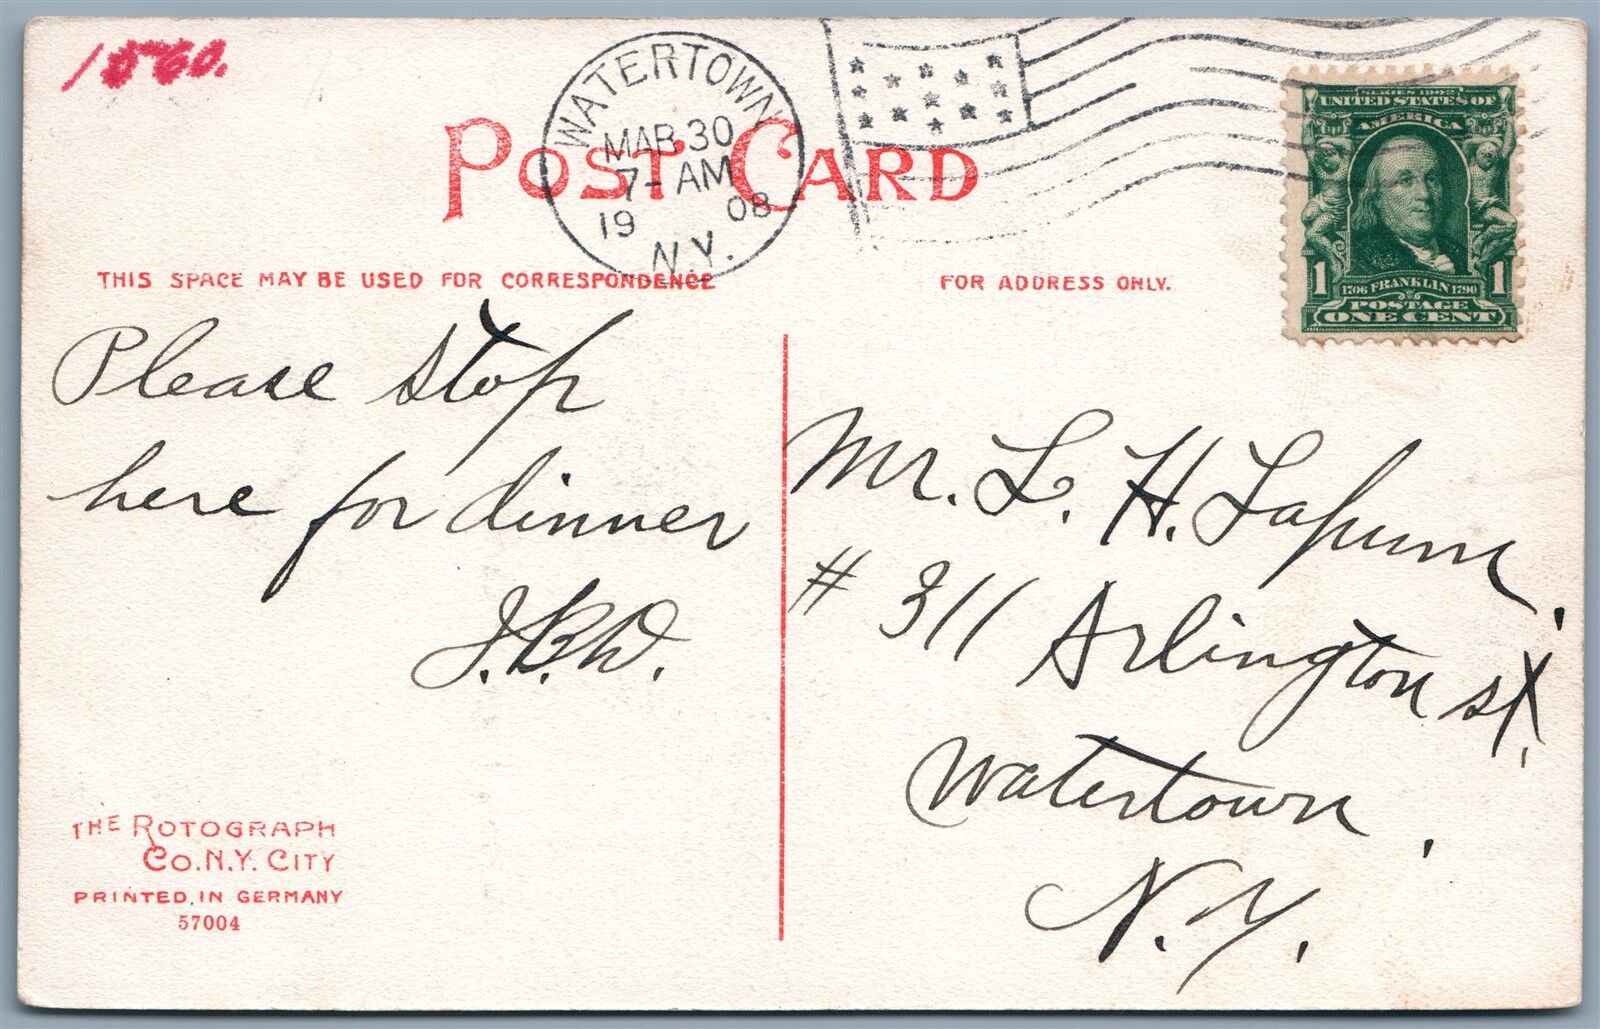 1860.
WATERTOWN
MAR 30
7- AM
19 08
N.Y.
POST CARD
SERIES 1902
UNITED STATES OF
AMERICA
1 1706 FRANKLIN 1790 1
POSTAGE
ONE CENT
THIS SPACE MAY BE USED FOR CORRESPONDENCE
FOR ADDRESS ONLY.
Please stop
here for dinner
J.B.W.
Mr. L. H. Lapum.
# 311 Arlington st.
Watertown.
N.Y.
THE ROTOGRAPH
CO. N.Y. CITY
PRINTED IN GERMANY
57004